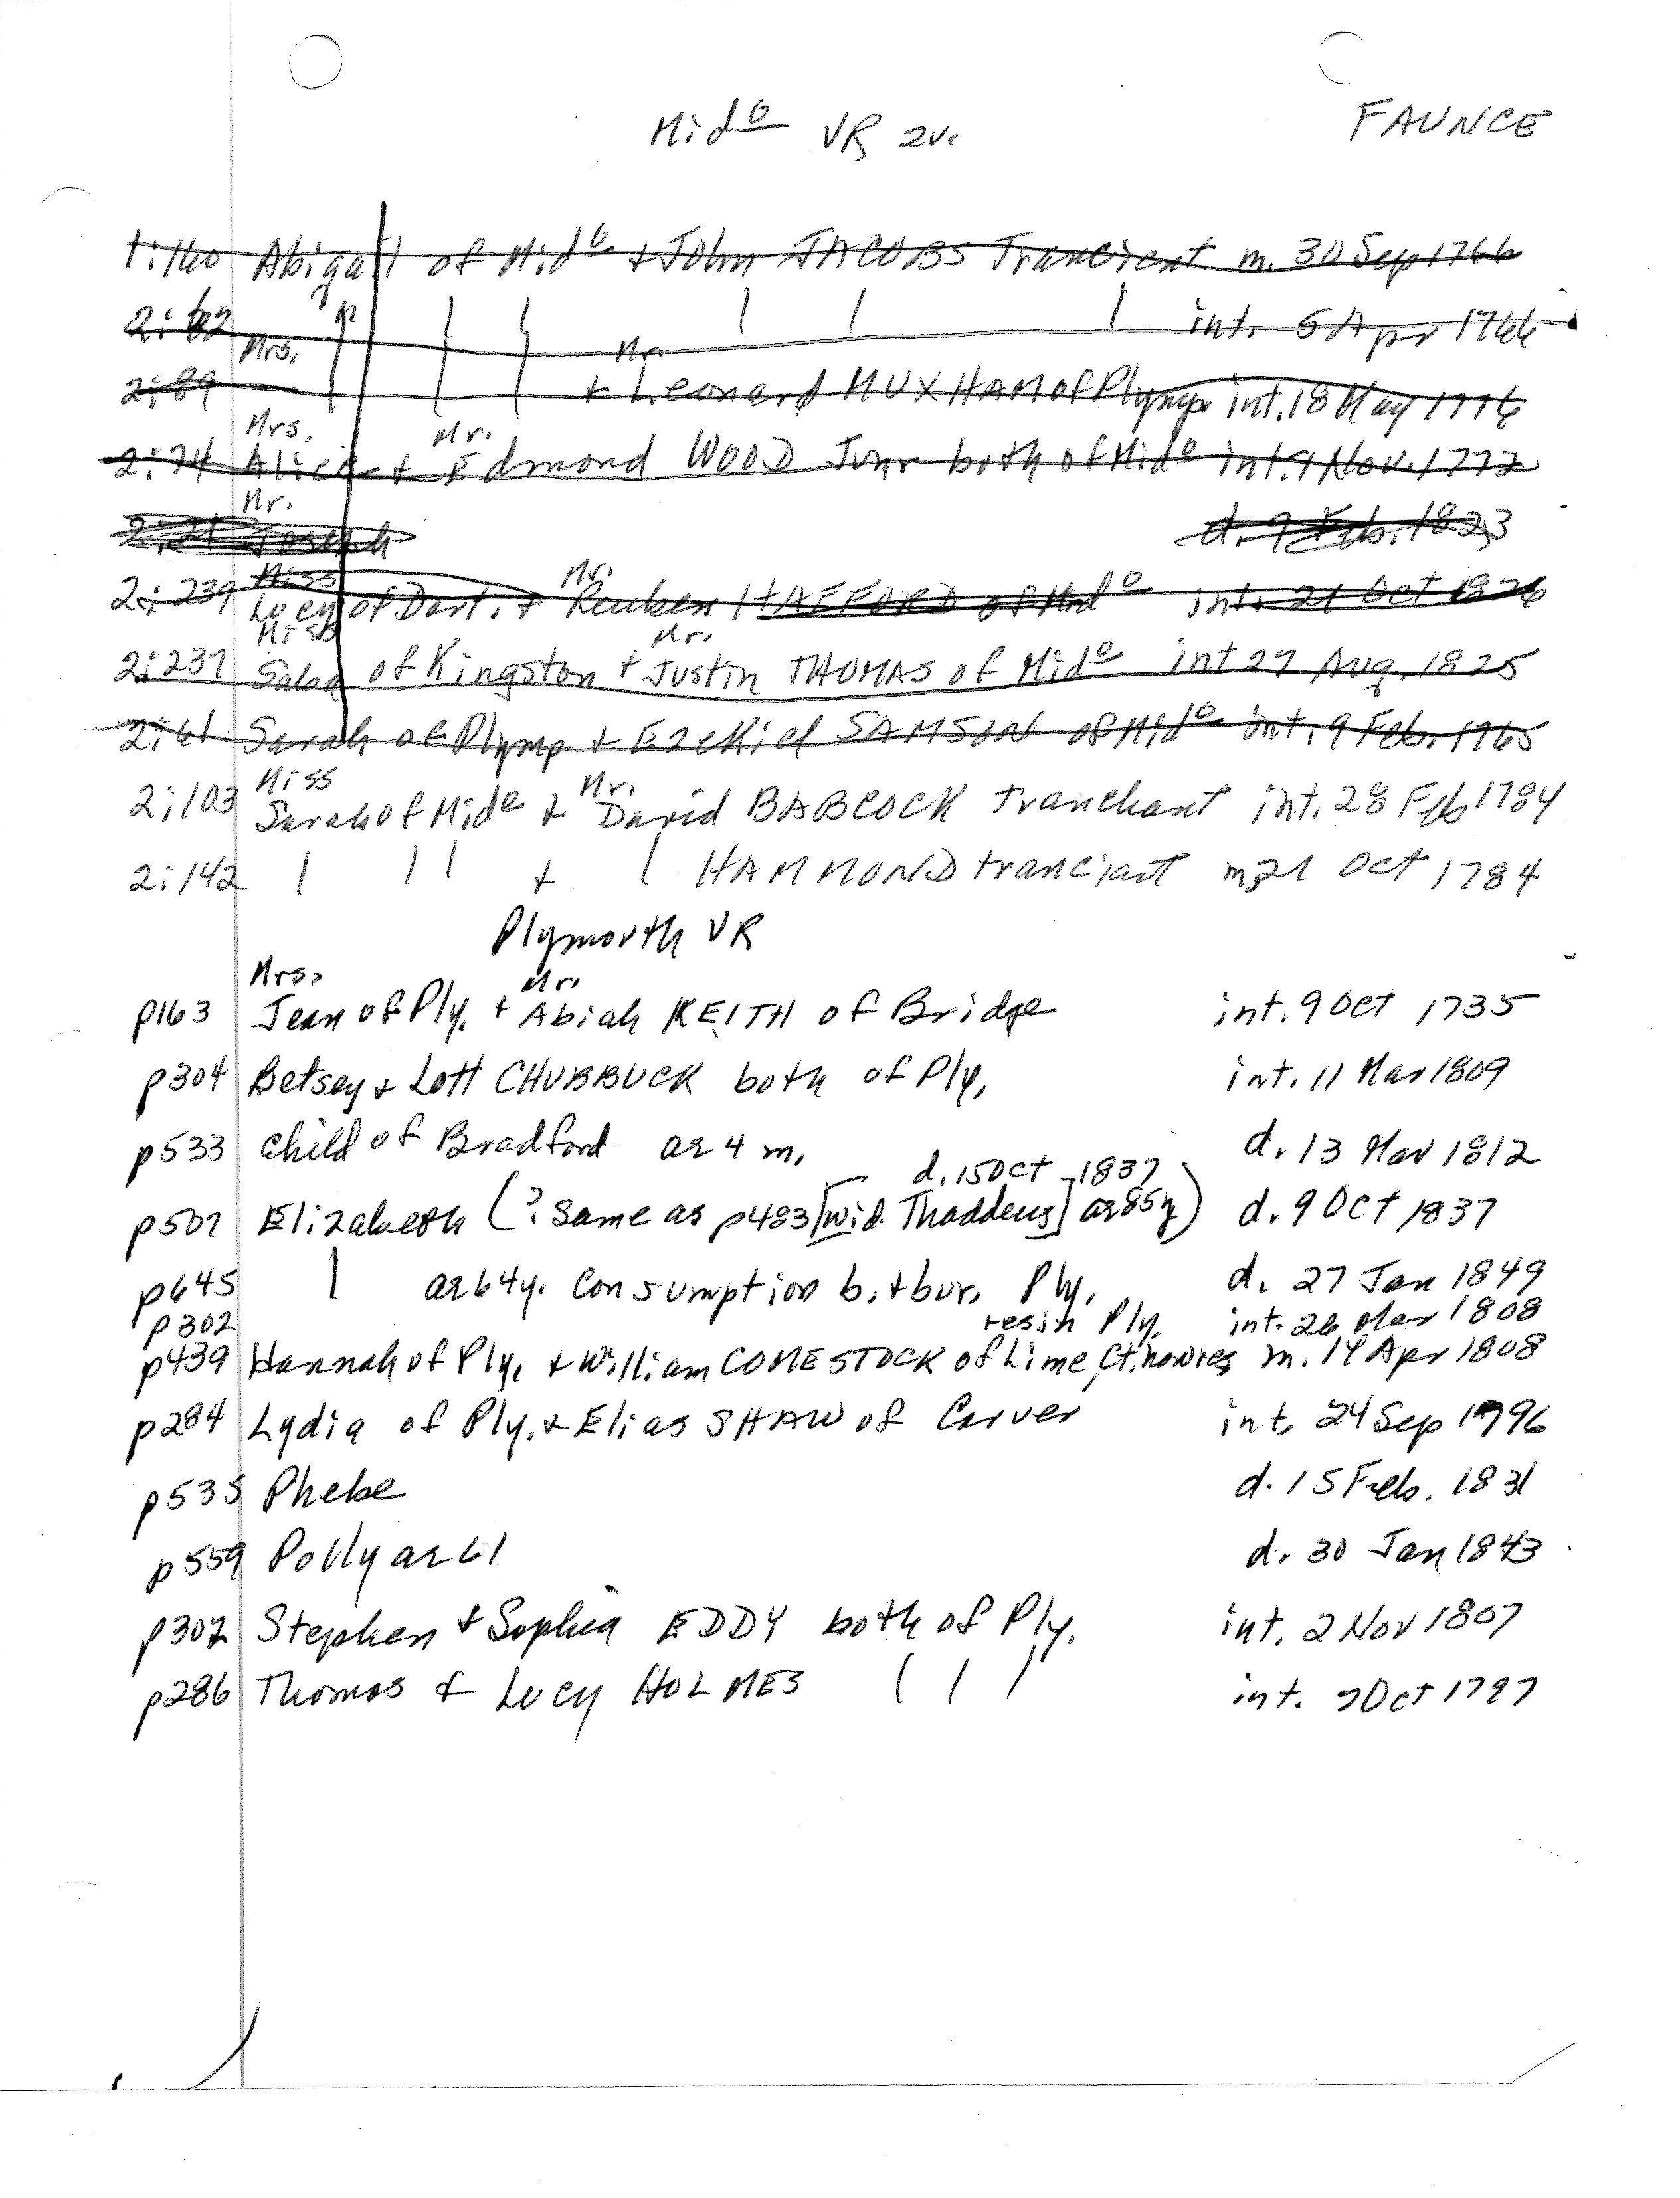 Mido VR 2v. FAUNCE
1:160 Abigail of Mido + John JACOBS Trancient m. 30 Sep 1766
2:62 int. 5 Apr 1766
Mrs. Mr.
2:89 + Leonard MUXHAM of Plymp int. 18 May 1776
Mrs. Mr.
2:74 Alice + Edmond WOOD Junr both of Mido int. 9 Nov. 1772
Mr.
2:21 Joseph d. 9 Feb. 1823
Miss Mr.
2:239 Lucy of Dart. + Reuben HAFFORD of Mido int. 21 Oct 1826
Miss Mr.
2:237 of Kingston + Justin THOMAS of Mido int 27 Aug. 1825
2:61 Sarah of Plymp. + Ezekiel SAMSON of Mido int. 9 Feb. 1765
Miss Mr.
2:103 Sarah of Mido + David BABCOCK Tranchant int. 28 Feb 1784
2:142 | | | + | HAMMOND tranciant m. 21 Oct 1784
Plymouth VR
Mrs. Mr.
p163 Jean of Ply. + Abiah KEITH of Bridge int. 9 Oct 1735
p304 Betsey + Lott CHUBBUCK both of Ply. int. 11 Mar 1809
p533 Child of Bradford ae 4 m. d. 13 Mar 1812
d. 15 Oct 1837
p507 Elizabeth (? Same as p483 [wid. Thaddeus] ae 85y) d. 9 Oct 1837
p645 | ae 64y. Consumption b. + bur. Ply. d. 27 Jan 1849
p302 res in Ply. int. 26 Mar 1808
p439 Hannah of Ply. + William COMESTOCK of Lime, Ct. now res m. 14 Apr 1808
p284 Lydia of Ply. + Elias SHAW of Carver int. 24 Sep 1796
p535 Phebe d. 15 Feb. 1831
p559 Polly ae 61 d. 30 Jan 1843
p302 Stephen + Sophia EDDY both of Ply. int. 2 Nov 1807
p286 Thomas + Lucy HOLMES | | | int. 7 Oct 1797